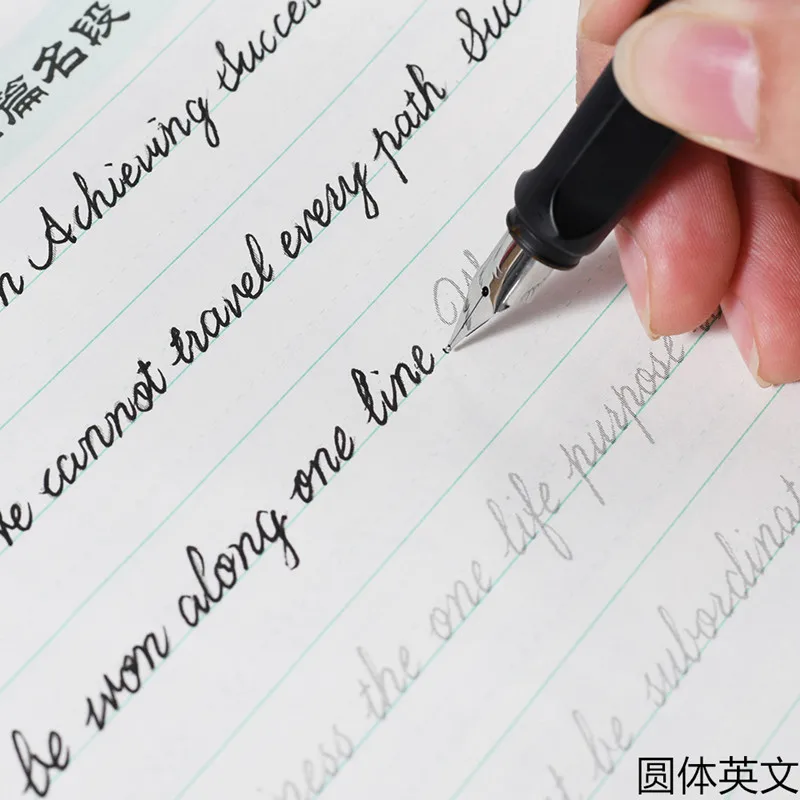 篇名段
Achieving Success
cannot travel every path Suc
be won along one line.
the one life purpose
be subordinat
圆体英文